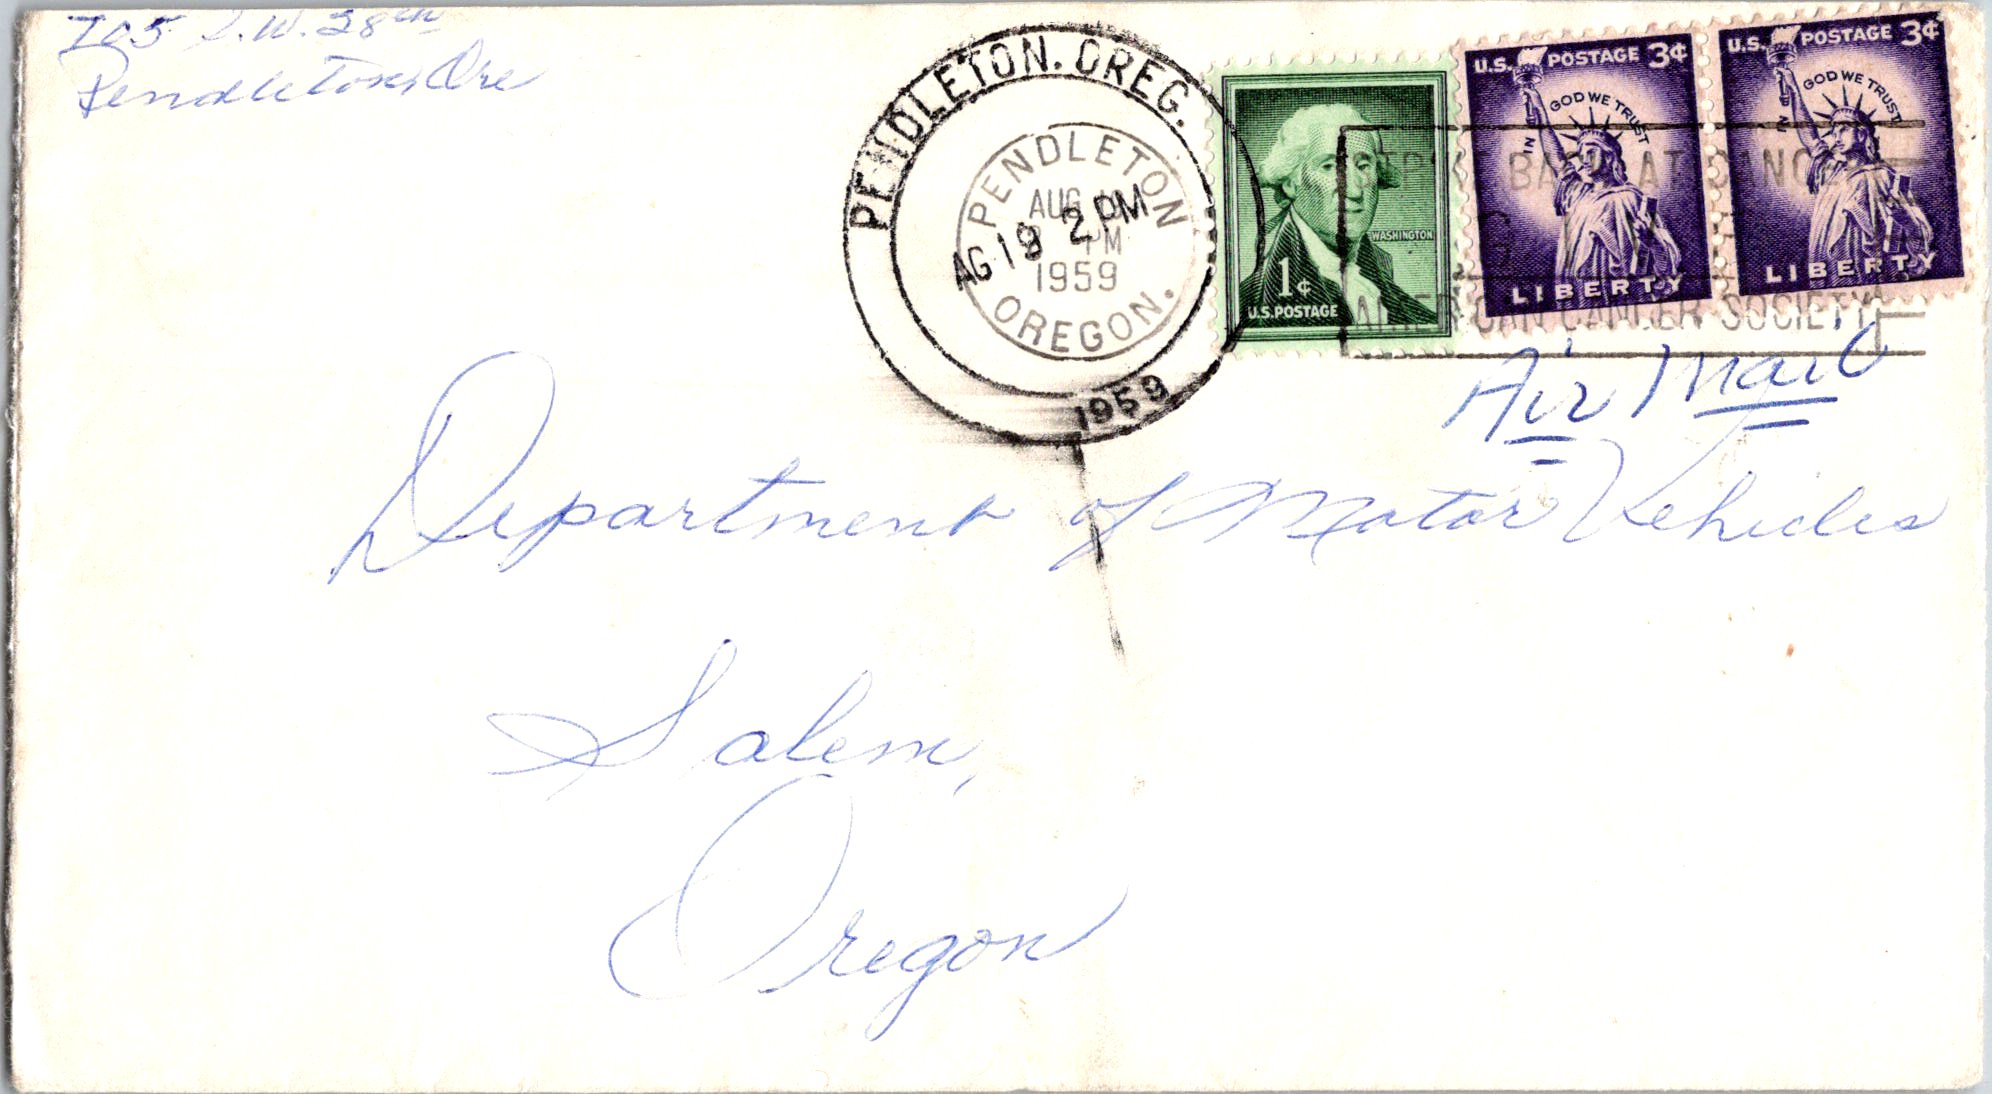 705 S.W. 28th
Pendleton, Ore
PENDLETON, OREG.
AG 19 2 PM
1959
PENDLETON
AUG 19
PM
1959
OREGON.
1¢
WASHINGTON
U.S. POSTAGE
U.S. POSTAGE 3¢
IN GOD WE TRUST
LIBERTY
U.S. POSTAGE 3¢
IN GOD WE TRUST
LIBERTY
BACK AT CANCER
AMERICAN CANCER SOCIETY
Air Mail
Department of Motor Vehicles
Salem,
Oregon